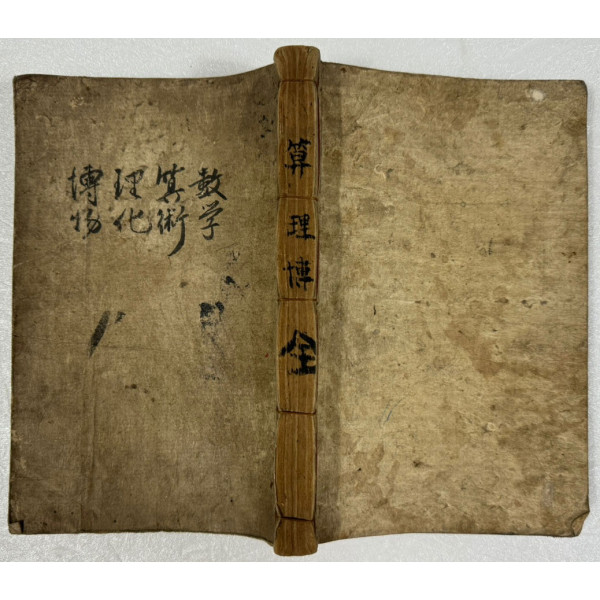 数学
算術
理化
博物
算理博全